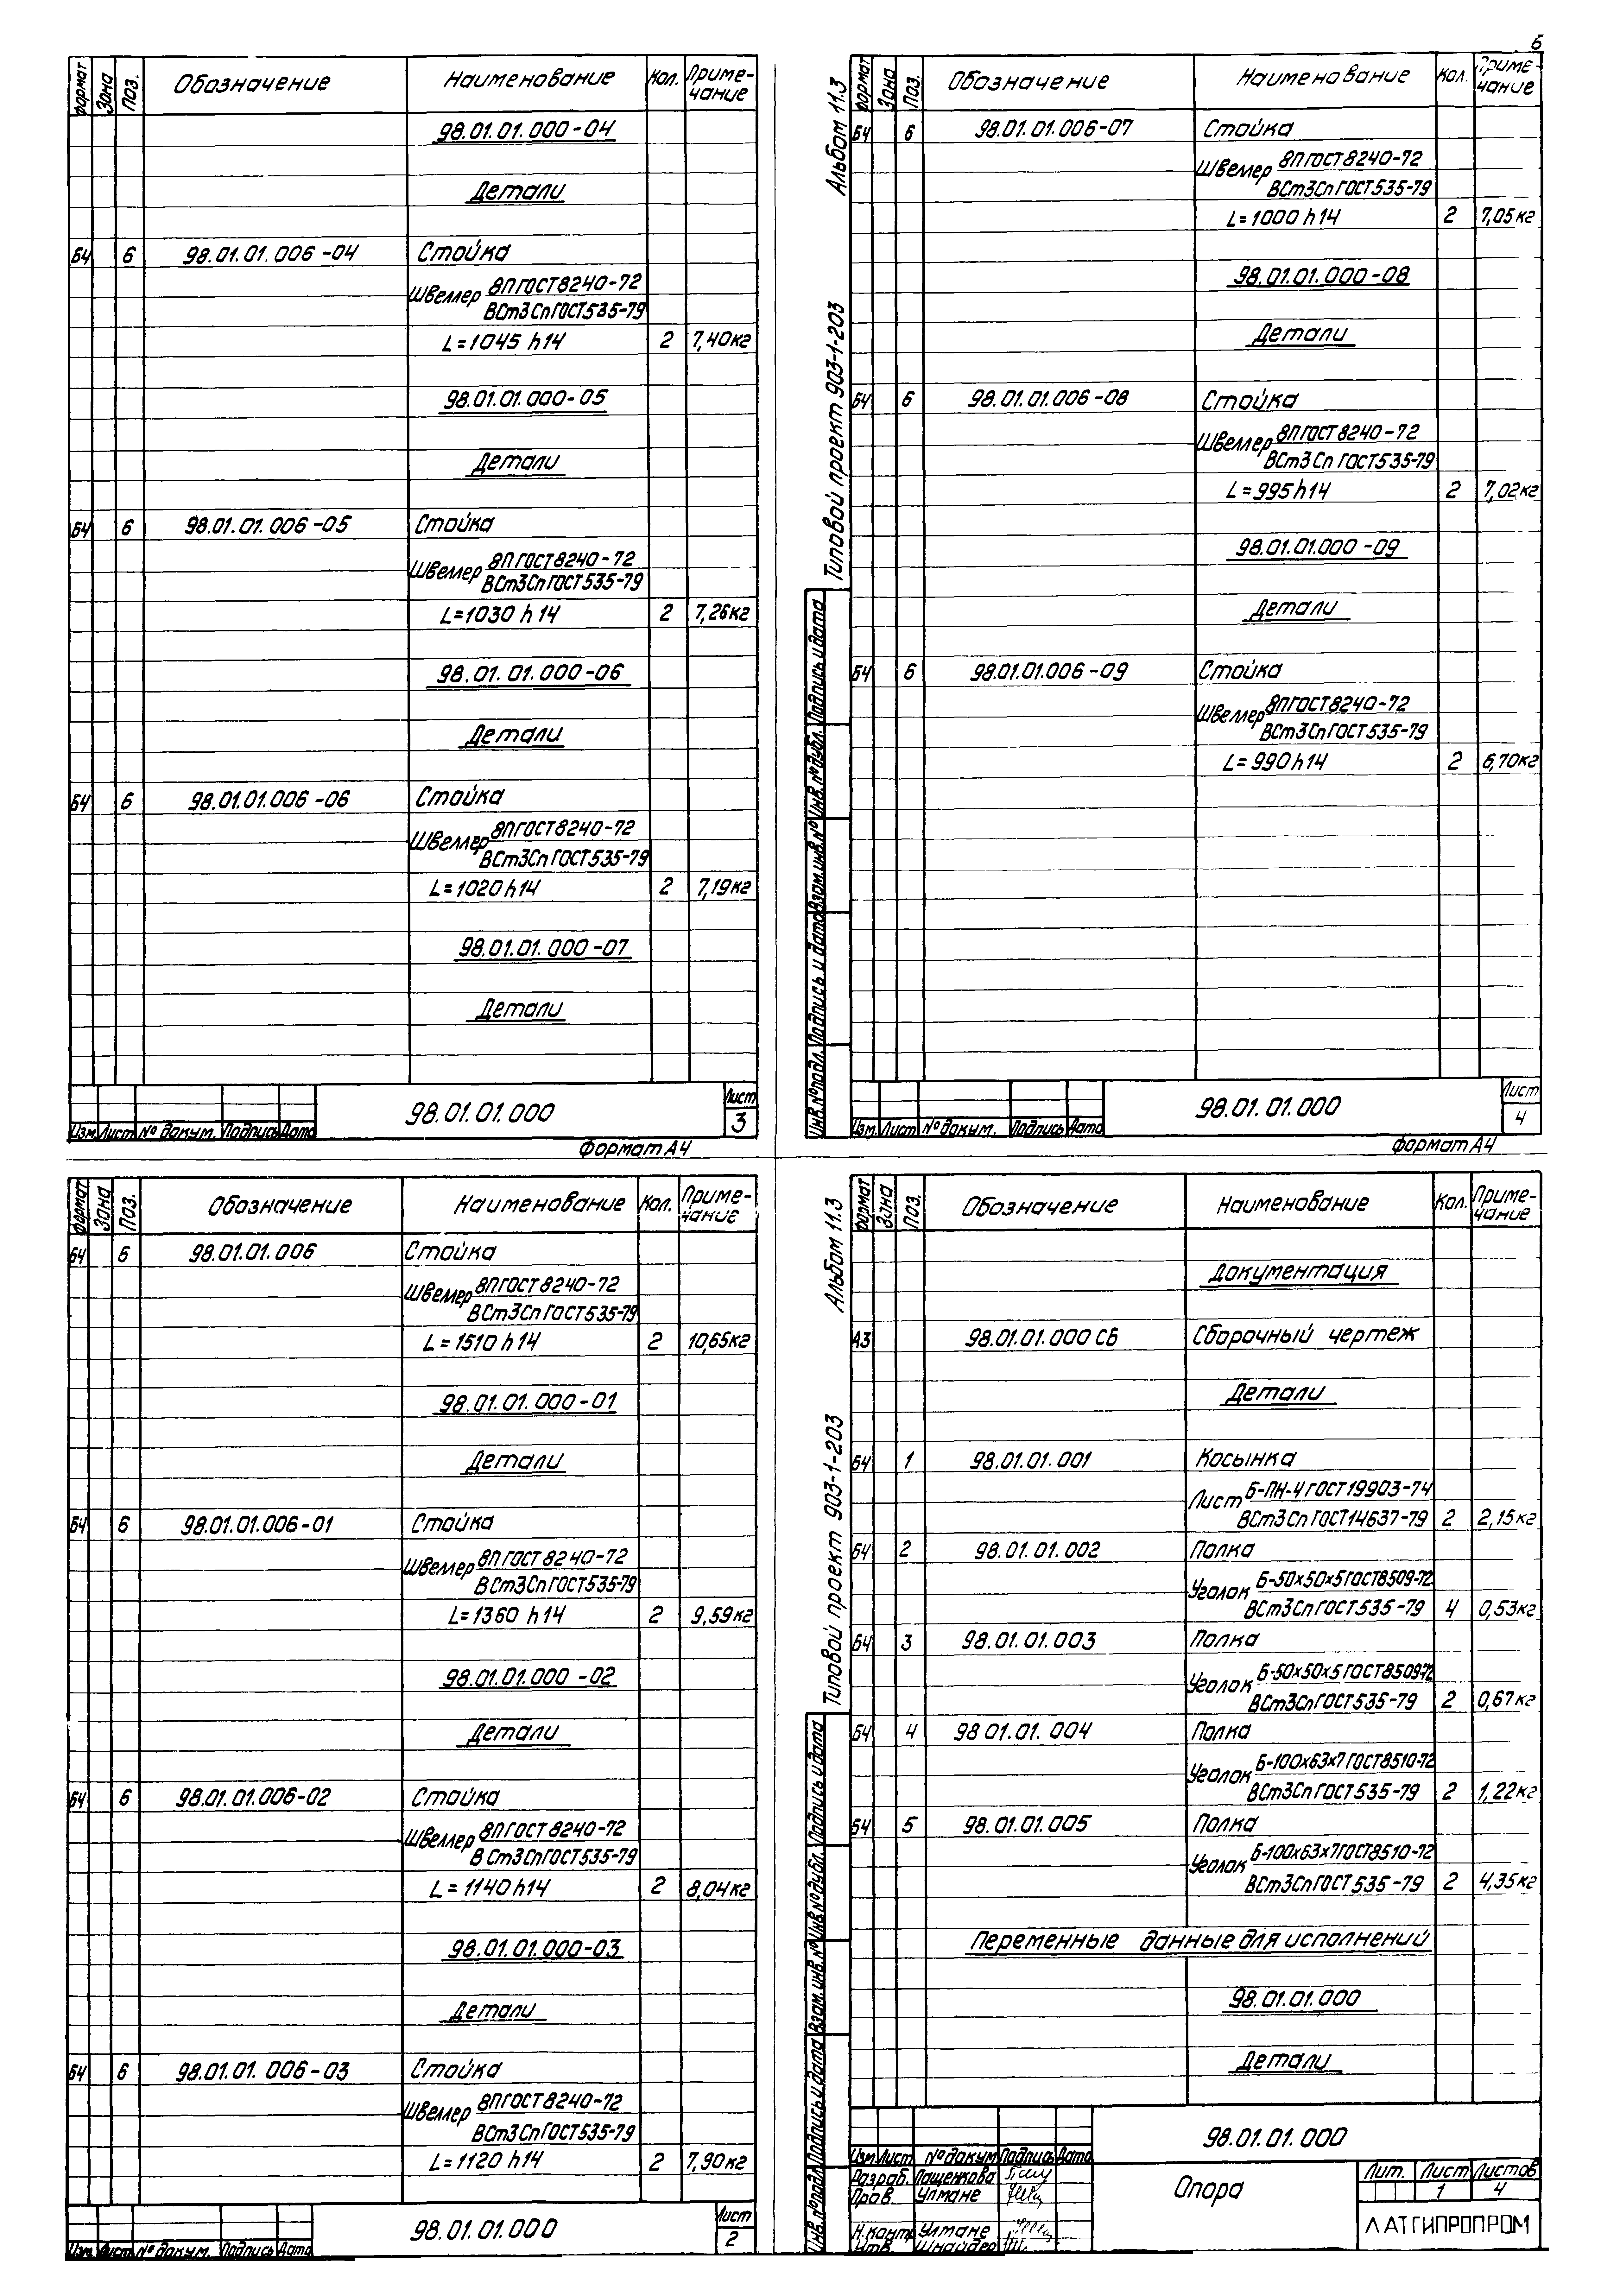 6
формат Зона Поз. Обозначение Наименование Кол. Приме-
чание
98.01.01.000-04
Детали
Б4 6 98.01.01.006-04 Стойка
Швеллер 8П ГОСТ 8240-72
ВСт3Сп ГОСТ 535-79
L=1045 h14 2 7,40кг
98.01.01.000-05
Детали
Б4 6 98.01.01.006-05 Стойка
Швеллер 8П ГОСТ 8240-72
ВСт3Сп ГОСТ 535-79
L=1030 h14 2 7,26кг
98.01.01.000-06
Детали
Б4 6 98.01.01.006-06 Стойка
Швеллер 8П ГОСТ 8240-72
ВСт3Сп ГОСТ 535-79
L=1020 h14 2 7,19кг
98.01.01.000-07
Детали
98.01.01.000
Лист
3
Изм. Лист № докум. Подпись Дата
Формат А4
Альбом 11.3
Типовой проект 903-1-203
Инв.№ подл. Подпись и дата Взам.инв.№ Инв.№ дубл. Подпись и дата
формат Зона Поз. Обозначение Наименование Кол. Приме-
чание
Б4 6 98.01.01.006-07 Стойка
Швеллер 8П ГОСТ 8240-72
ВСт3Сп ГОСТ 535-79
L=1000 h14 2 7,05кг
98.01.01.000-08
Детали
Б4 6 98.01.01.006-08 Стойка
Швеллер 8П ГОСТ 8240-72
ВСт3Сп ГОСТ 535-79
L=995 h14 2 7,02кг
98.01.01.000-09
Детали
Б4 6 98.01.01.006-09 Стойка
Швеллер 8П ГОСТ 8240-72
ВСт3Сп ГОСТ 535-79
L=990 h14 2 6,70кг
98.01.01.000
Лист
4
Изм. Лист № докум. Подпись Дата
Формат А4
формат Зона Поз. Обозначение Наименование Кол. Приме-
чание
Б4 6 98.01.01.006 Стойка
Швеллер 8П ГОСТ 8240-72
ВСт3Сп ГОСТ 535-79
L=1510 h14 2 10,65кг
98.01.01.000-01
Детали
Б4 6 98.01.01.006-01 Стойка
Швеллер 8П ГОСТ 8240-72
ВСт3Сп ГОСТ 535-79
L=1360 h14 2 9,59кг
98.01.01.000-02
Детали
Б4 6 98.01.01.006-02 Стойка
Швеллер 8П ГОСТ 8240-72
ВСт3Сп ГОСТ 535-79
L=1140 h14 2 8,04кг
98.01.01.000-03
Детали
Б4 6 98.01.01.006-03 Стойка
Швеллер 8П ГОСТ 8240-72
ВСт3Сп ГОСТ 535-79
L=1120 h14 2 7,90кг
98.01.01.000
Лист
2
Изм. Лист № докум. Подпись Дата
Альбом 11.3
Типовой проект 903-1-203
Инв.№ подл. Подпись и дата Взам.инв.№ Инв.№ дубл. Подпись и дата
формат Зона Поз. Обозначение Наименование Кол. Приме-
чание
Документация
А3 98.01.01.000 СБ Сборочный чертеж
Детали
Б4 1 98.01.01.001 Косынка
Лист Б-ПН-4 ГОСТ 19903-74
ВСт3Сп ГОСТ 14637-79 2 2,15кг
Б4 2 98.01.01.002 Полка
Уголок Б-50х50х5 ГОСТ 8509-72
ВСт3Сп ГОСТ 535-79 4 0,53кг
Б4 3 98.01.01.003 Полка
Уголок Б-50х50х5 ГОСТ 8509-72
ВСт3Сп ГОСТ 535-79 2 0,67кг
Б4 4 98 01.01.004 Полка
Уголок Б-100х63х7 ГОСТ 8510-72
ВСт3Сп ГОСТ 535-79 2 1,22кг
Б4 5 98.01.01.005 Полка
Уголок Б-100х63х7 ГОСТ 8510-72
ВСт3Сп ГОСТ 535-79 2 4,35кг
Переменные данные для исполнений
98.01.01.000
Детали
98.01.01.000
Изм. Лист № докум. Подпись Дата
Разраб. Лащенкова
Пров. Улмане
Н.контр. Улмане
Утв. Шнайдер
Опора
Лит. Лист Листов
1 4
ЛАТГИПРОПРОМ